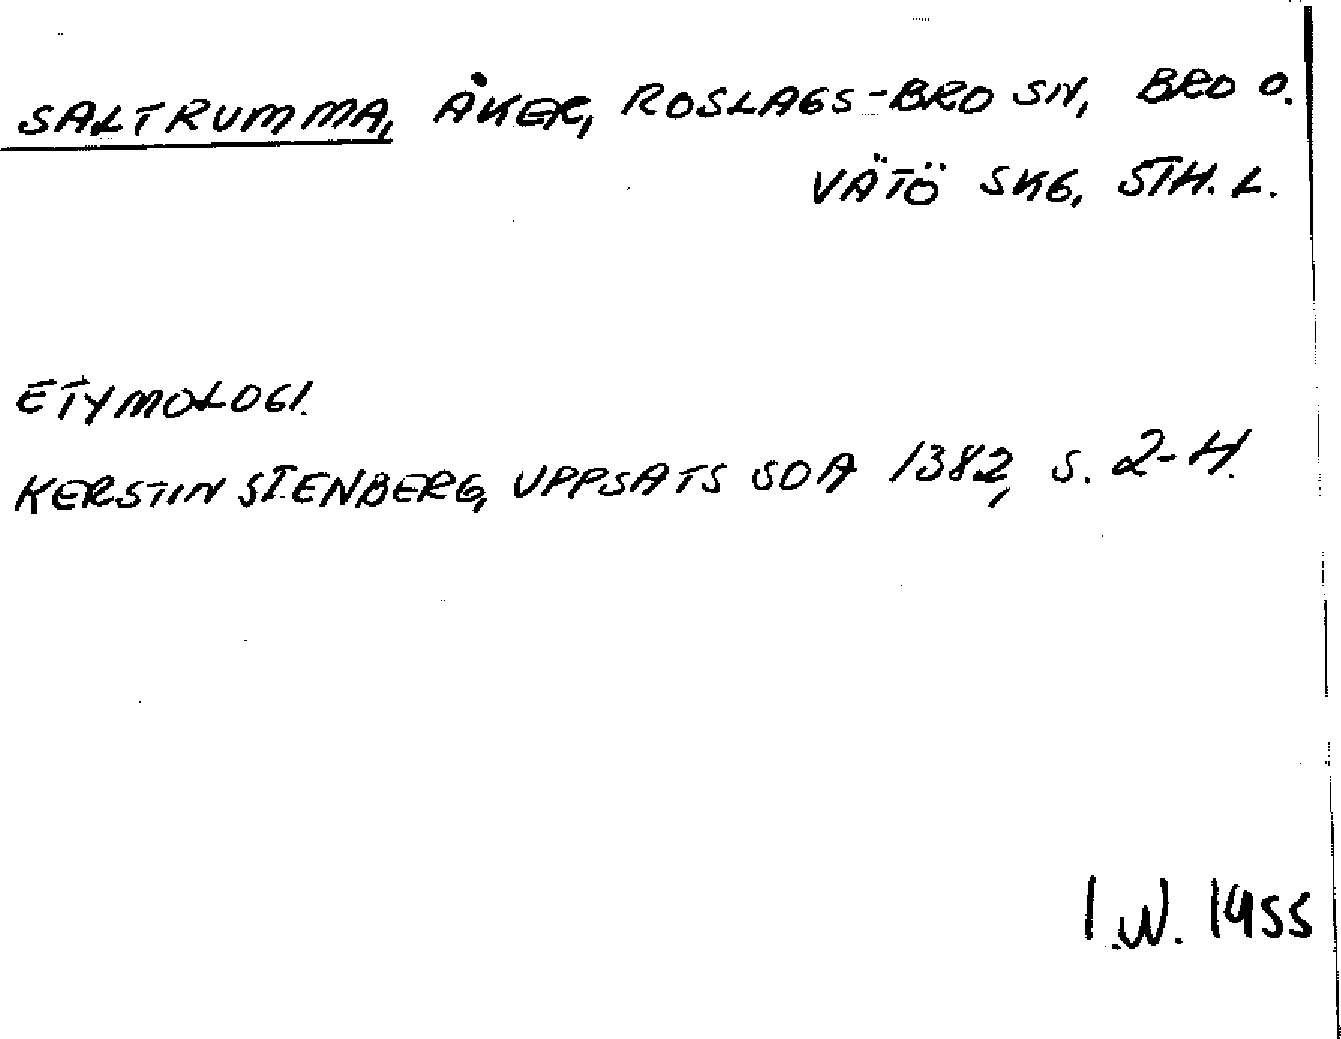 SALTRUMMA, ÅKER, ROSLAGS-BRO SN, BRO O.
VÄTÖ SKG, STH. L.
ETYMOLOGI.
KERSTIN STENBERG, UPPSATS SOA 1382, S. 2-4.
I.W. 1955